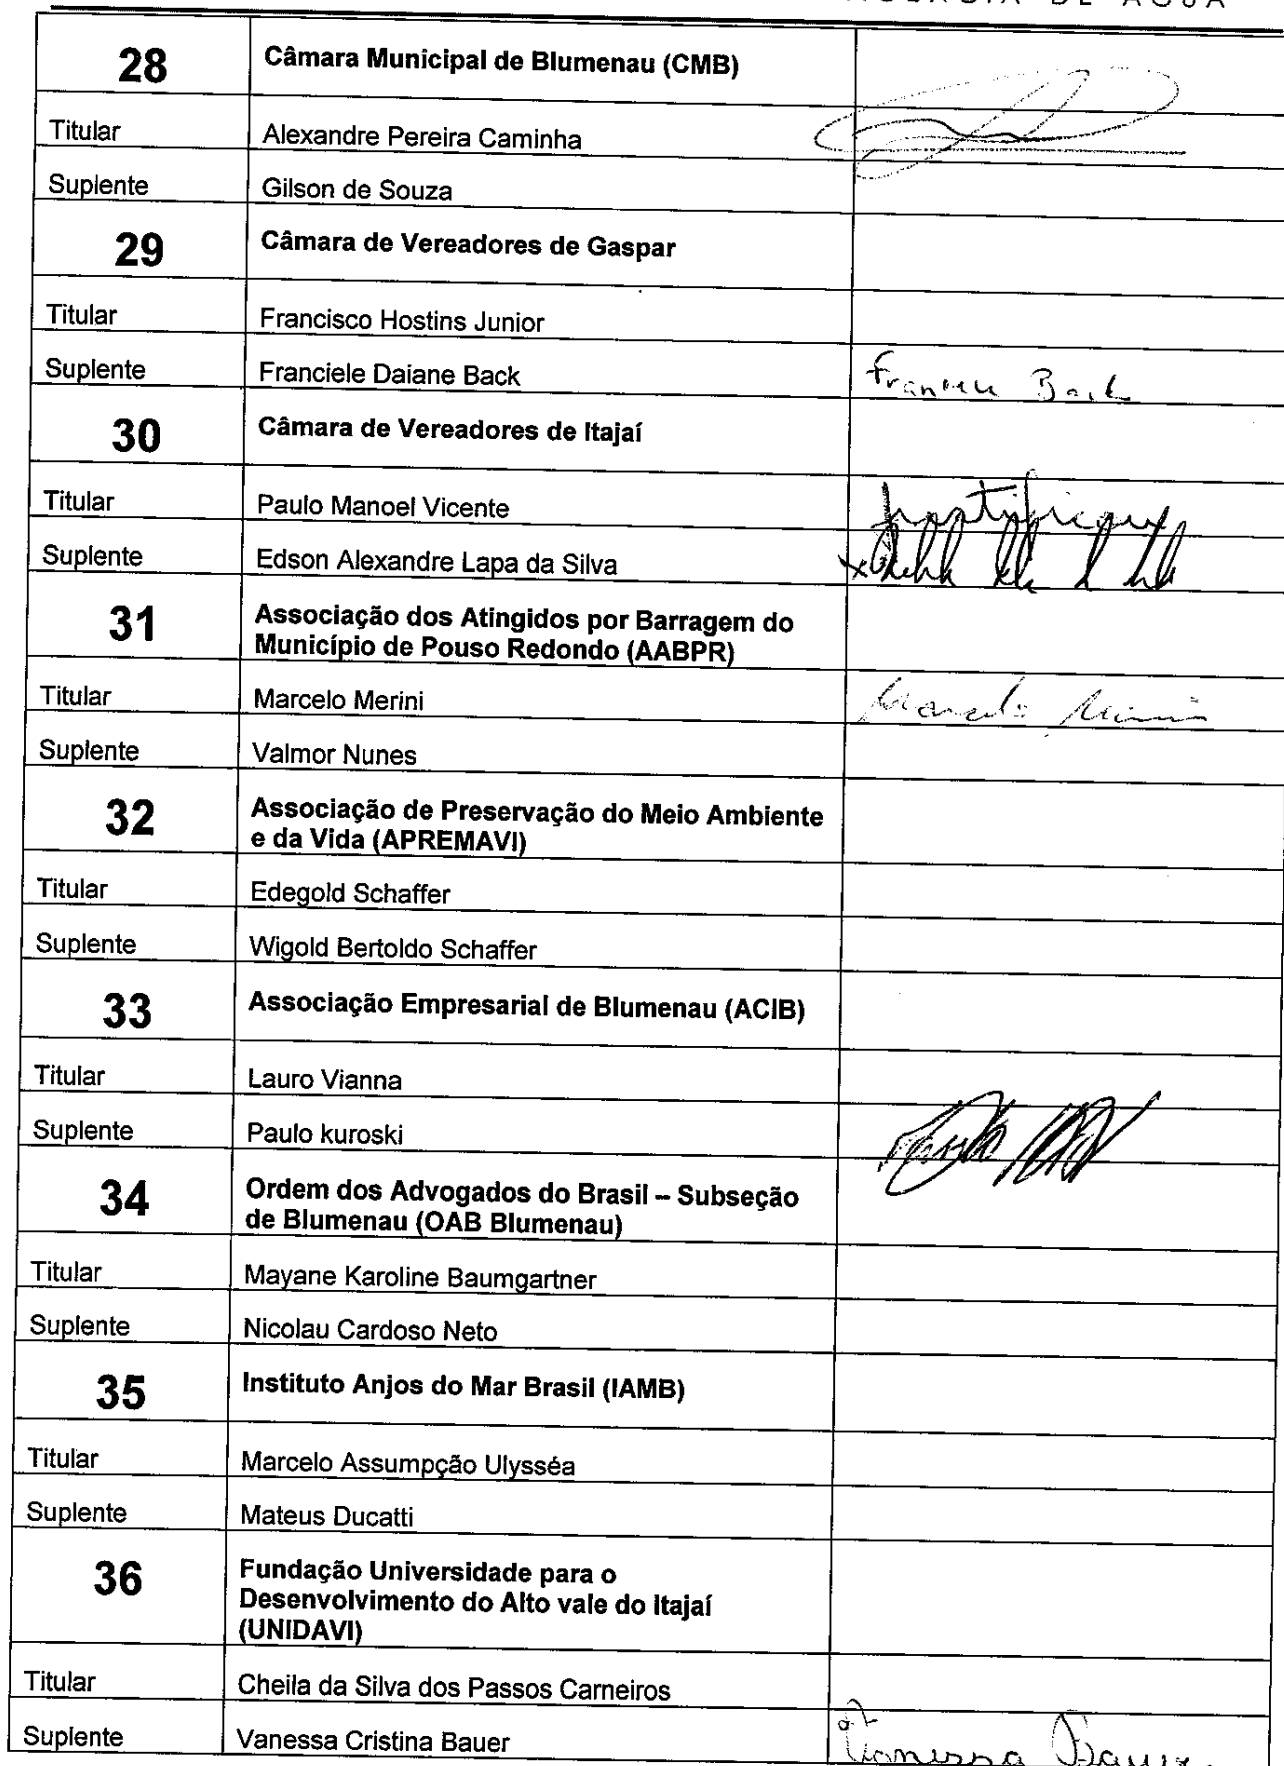 DE ÁGUA
28 Câmara Municipal de Blumenau (CMB)
Titular Alexandre Pereira Caminha
Suplente Gilson de Souza
29 Câmara de Vereadores de Gaspar
Titular Francisco Hostins Junior
Suplente Franciele Daiane Back Back
30 Câmara de Vereadores de Itajaí
Titular Paulo Manoel Vicente justificou
Suplente Edson Alexandre Lapa da Silva
31 Associação dos Atingidos por Barragem do
Município de Pouso Redondo (AABPR)
Titular Marcelo Merini Marcelo Merini
Suplente Valmor Nunes
32 Associação de Preservação do Meio Ambiente
e da Vida (APREMAVI)
Titular Edegold Schaffer
Suplente Wigold Bertoldo Schaffer
33 Associação Empresarial de Blumenau (ACIB)
Titular Lauro Vianna
Suplente Paulo kuroski
34 Ordem dos Advogados do Brasil – Subseção
de Blumenau (OAB Blumenau)
Titular Mayane Karoline Baumgartner
Suplente Nicolau Cardoso Neto
35 Instituto Anjos do Mar Brasil (IAMB)
Titular Marcelo Assumpção Ulysséa
Suplente Mateus Ducatti
36 Fundação Universidade para o
Desenvolvimento do Alto vale do Itajaí
(UNIDAVI)
Titular Cheila da Silva dos Passos Carneiros
Suplente Vanessa Cristina Bauer Vanessa Bauer